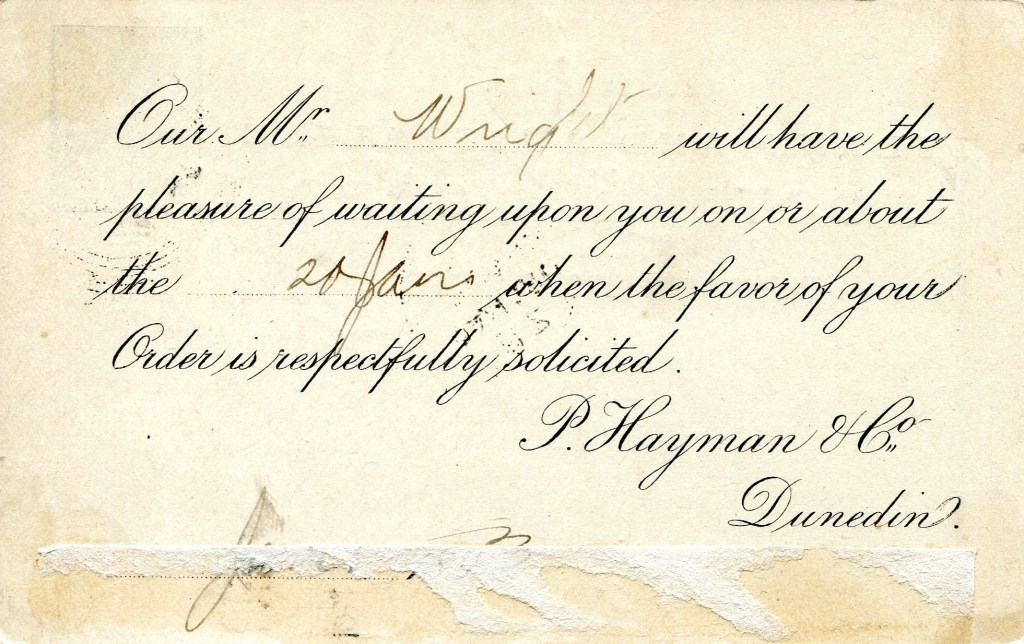 Our Mr. Wright will have the
pleasure of waiting upon you on or about
the 20 Jany when the favor of your
Order is respectfully solicited.
P. Hayman & Co.
Dunedin.